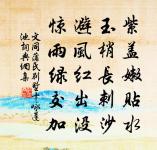 紫盖嫩贴水
玉梢长刺沙
避风红出没
惊雨绿交加
文同蒲氏别墅十咏莲
池词典网集